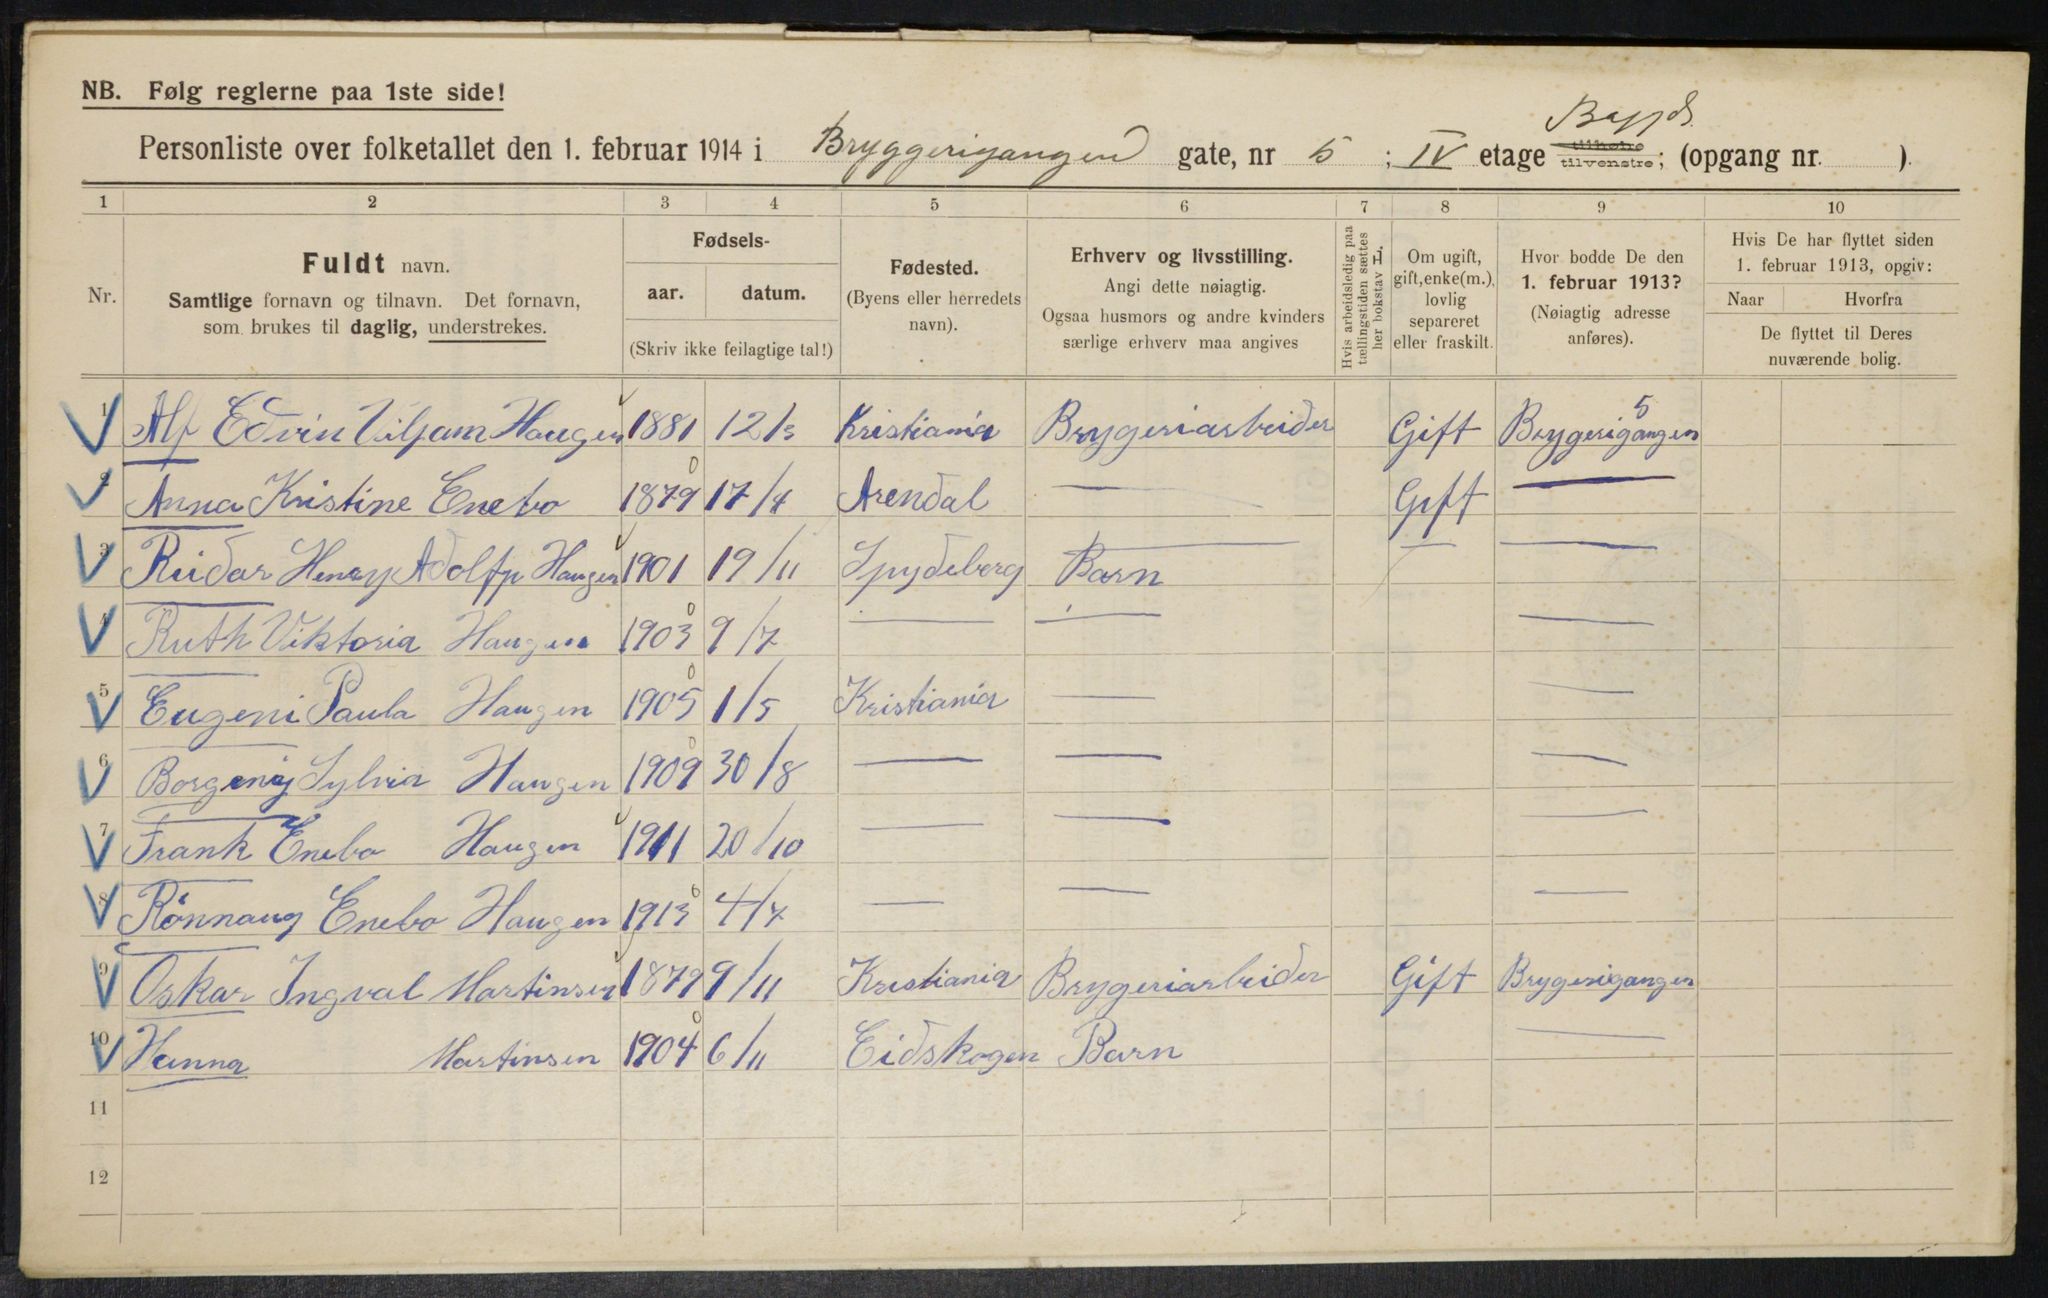 NB. Følg reglerne paa 1ste side!
Personliste over folketallet den 1. februar 1914 i Bryggerigangen gate, nr 5 ; IV etage tilhøire tilvenstre; (opgang nr. ).
1 2 3 4 5 6 7 8 9 10
Nr.
Fuldt navn.
Samtlige fornavn og tilnavn. Det fornavn,
som brukes til daglig, understrekes.
Fødsels-
aar. datum.
(Skriv ikke feilagtige tal!)
Fødested.
(Byens eller herredets
navn).
Erhverv og livsstilling.
Angi dette nøiagtig.
Ogsaa husmors og andre kvinders
særlige erhverv maa angives
Hvis arbeidsledig paa
tællingstiden sættes
her bokstav L.
Om ugift,
gift, enke(m.),
lovlig
separeret
eller fraskilt.
Hvor bodde De den
1. februar 1913?
(Nøiagtig adresse
anføres).
Hvis De har flyttet siden
1. februar 1913, opgiv:
Naar Hvorfra
De flyttet til Deres
nuværende bolig.
1 Alf Edvin Viljam Haugen 1881 12/3 Kristiania Brygeriarbeider Gift Brygerigangen 5
2 Anna Kristine Enebo 1879 17/4 Arendal — Gift —
3 Reidar Henry Adolf Haugen 1901 19/11 Spydeberg Barn — —
4 Ruth Viktoria Haugen 1903 9/7 — — —
5 Eugeni Paula Haugen 1905 1/5 Kristiania — —
6 Borgeny Sylvia Haugen 1909 30/8 — — —
7 Frank Enebo Haugen 1911 20/10 — — —
8 Rönnaug Enebo Haugen 1913 4/7 — — —
9 Oskar Ingval Martinsen 1879 9/11 Kristiania Brygeriarbeider Gift Brygerigangen
10 Hanna Martinsen 1904 6/11 Eidskogen Barn —
11
12